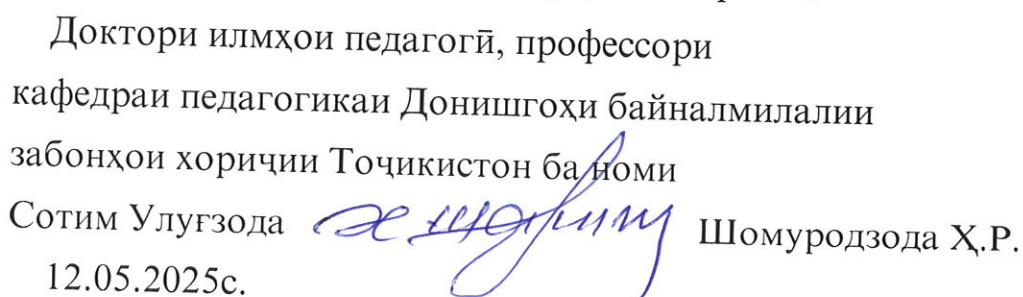 Доктори илмҳои педагогӣ, профессори
кафедраи педагогикаи Донишгоҳи байналмилалии
забонҳои хориҷии Тоҷикистон ба номи
Сотим Улуғзода Шомуродзода Ҳ.Р.
12.05.2025с.